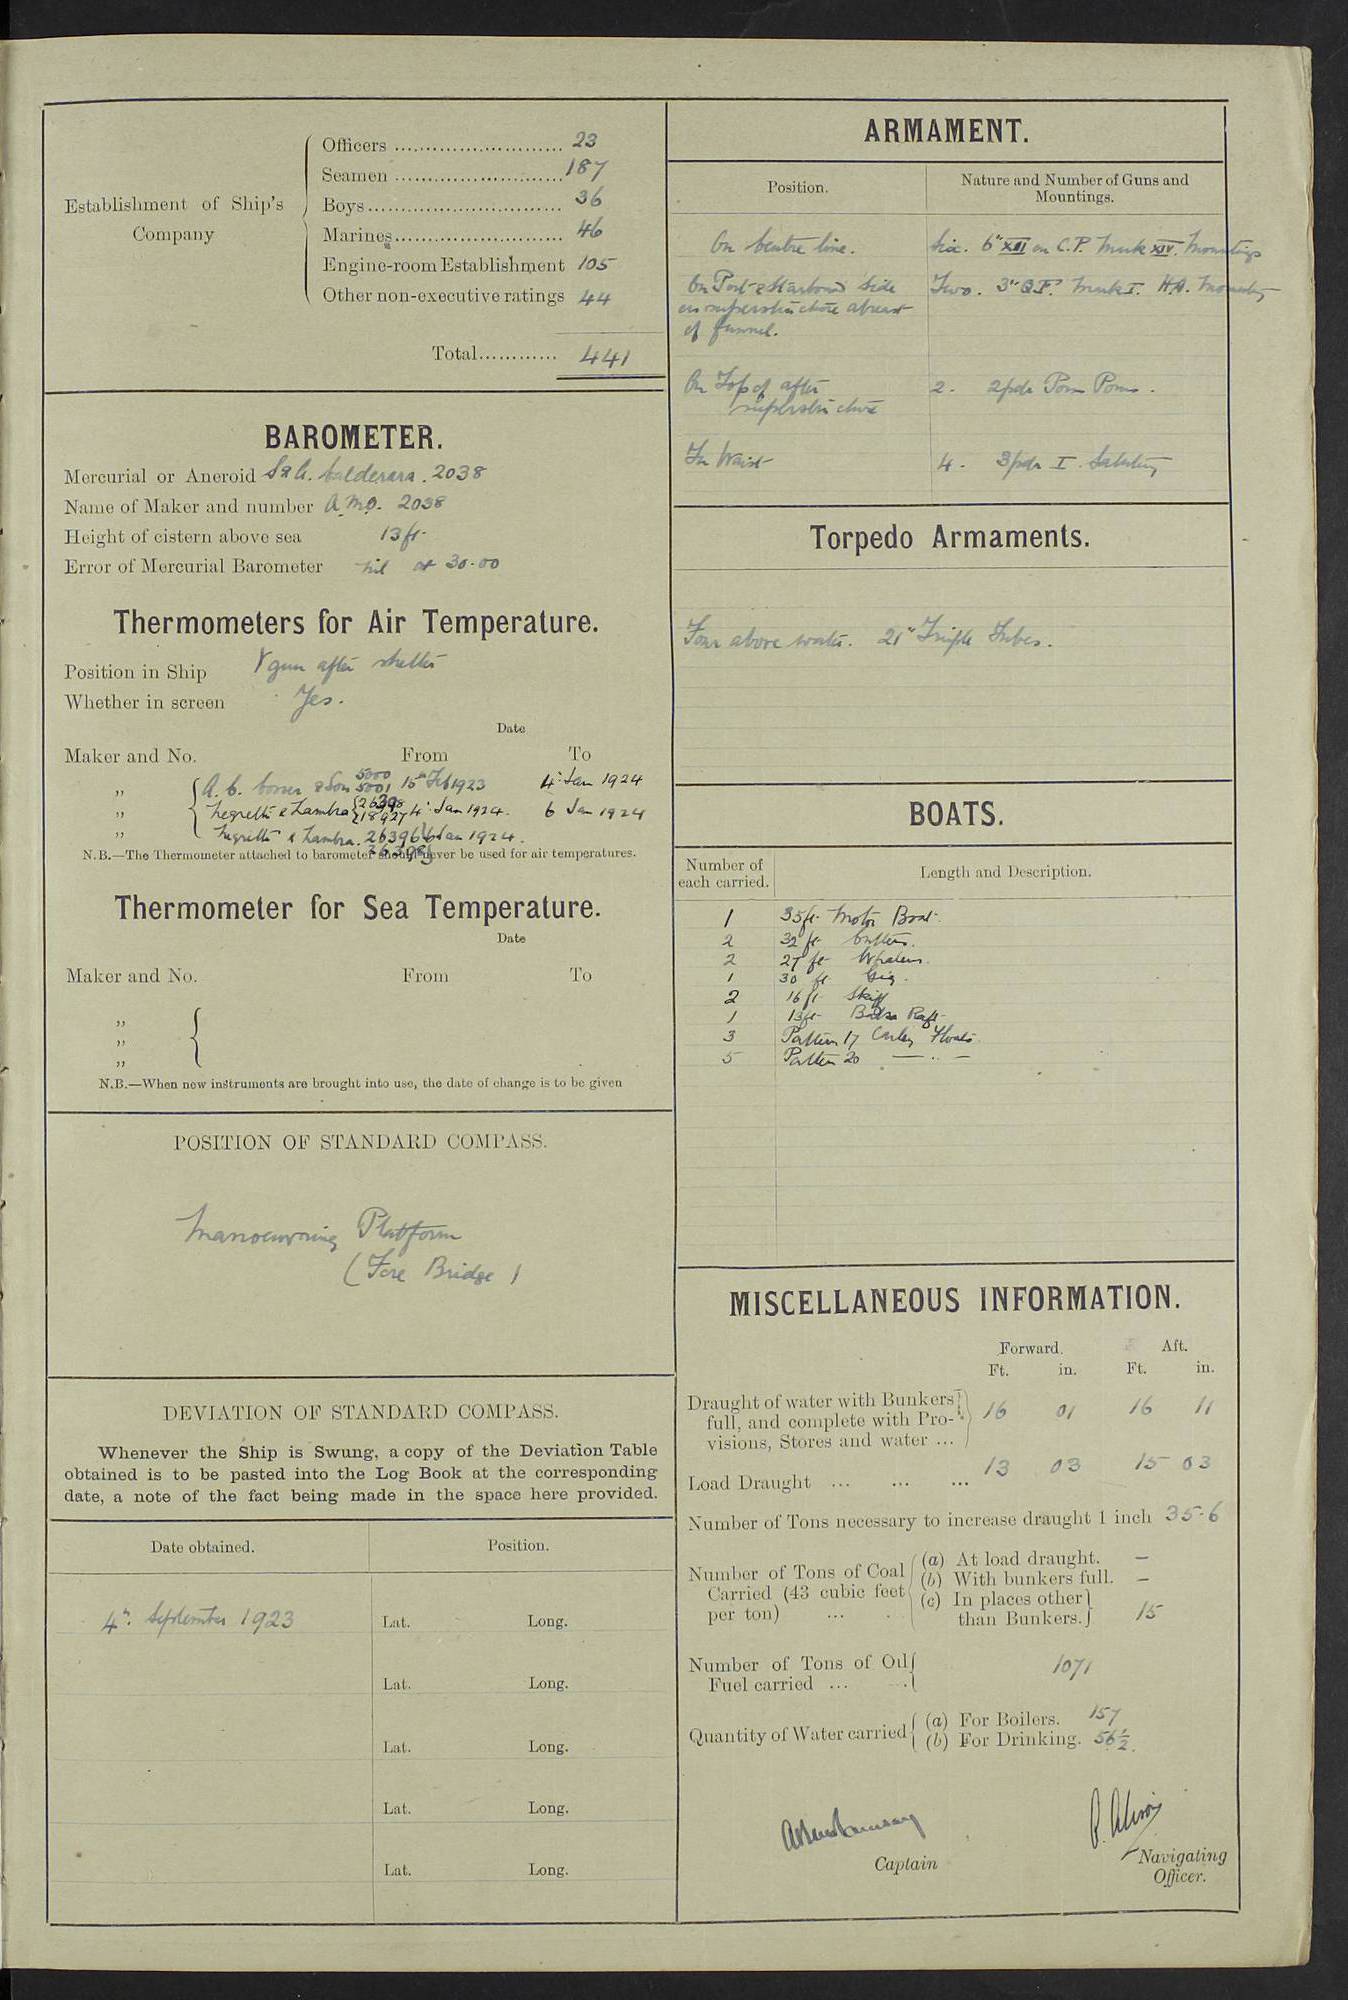 Establishment of Ship's Company
Officers ........................... 23
Seamen ........................... 187
Boys ............................... 36
Marines ........................... 46
Engine-room Establishment 105
Other non-executive ratings 44
Total............ 441
BAROMETER.
Mercurial or Aneroid 2038
Name of Maker and number A.M.O. 2038
Height of cistern above sea 13 ft.
Error of Mercurial Barometer nil at 30.00
Thermometers for Air Temperature.
Position in Ship Y gun after shelter
Whether in screen Yes.
Date
Maker and No. From To
" & Son 5000 5001 15th Feb 1923 4th Jan 1924
" Negretti & Zambra 18927 4th Jan 1924. 6 Jan 1924
" Negretti & Zambra. 26396 6 Jan 1924.
26398
N.B.—The Thermometer attached to barometer should never be used for air temperatures.
Thermometer for Sea Temperature.
Date
Maker and No. From To
"
"
"
N.B.—When new instruments are brought into use, the date of change is to be given
POSITION OF STANDARD COMPASS.
Manoeuvring Platform
(Fore Bridge)
DEVIATION OF STANDARD COMPASS.
Whenever the Ship is Swung, a copy of the Deviation Table
obtained is to be pasted into the Log Book at the corresponding
date, a note of the fact being made in the space here provided.
Date obtained. Position.
4th September 1923 Lat. Long.
Lat. Long.
Lat. Long.
Lat. Long.
Lat. Long.
ARMAMENT.
Position. Nature and Number of Guns and
Mountings.
On Centre line. Six. 6" XII on C.P. Mark XIV. Mountings
On Port & Starboard Side Two. 3" Q.F. Mark I. H.A. Mounting
on superstructure abreast
of funnel.
On Top of after 2. 2pdr Pom Poms.
superstructure
In Waist 4. 3pdr I. Saluting
Torpedo Armaments.
Four above water. 21" Triple Tubes.
BOATS.
Number of
each carried. Length and Description.
1 35 ft. Motor Boat.
2 32 ft Cutters.
2 27 ft Whalers.
1 30 ft Gig.
2 16 ft Skiff
1 13 ft. Balsa Raft.
3 Pattern 17 Carley Floats.
5 Pattern 20 — " —
MISCELLANEOUS INFORMATION.
Forward. Aft.
Ft. in. Ft. in.
Draught of water with Bunkers
full, and complete with Pro- 16 01 16 11
visions, Stores and water ...
Load Draught ... ... ... 13 03 15 03
Number of Tons necessary to increase draught 1 inch 35.6
Number of Tons of Coal (a) At load draught. —
Carried (43 cubic feet (b) With bunkers full. —
per ton) ... (c) In places other
than Bunkers. 15
Number of Tons of Oil
Fuel carried ... 1071
Quantity of Water carried (a) For Boilers. 157
(b) For Drinking. 56½.
Captain
Navigating
Officer.